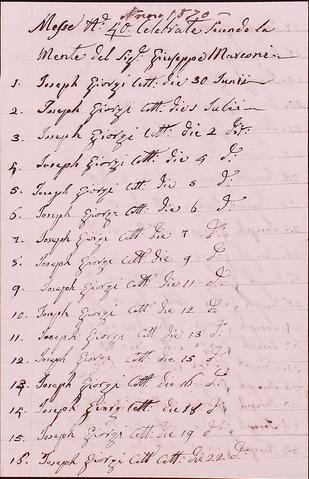 Anno 1870
Messe N.o 40. Celebrate Secondo la
Mente del Sig.r Giuseppe Marconi
1. Joseph Giorgi Cott: die 30 Junii
2. Joseph Giorgi Cott: die 1 Julii
3. Joseph Giorgi Cott: die 2 d.o
4. Joseph Giorgi Cott: die 4 d.o
5. Joseph Giorgi Cott: die 5 d.o
6. Joseph Giorgi Cott: die 6 d.o
7. Joseph Giorgi Cott: die 7 d.o
8. Joseph Giorgi Cott: die 9 d.o
9. Joseph Giorgi Cott: die 11 d.o
10. Joseph Giorgi Cott: die 12 d.o
11. Joseph Giorgi Cott: die 13 d.o
12. Joseph Giorgi Cott: die 15 d.o
13. Joseph Giorgi Cott: die 16 d.o
14. Joseph Giorgi Cott: die 18 d.o
15. Joseph Giorgi Cott: die 19 d.o
16. Joseph Giorgi Cott Cott: die 22 d.o